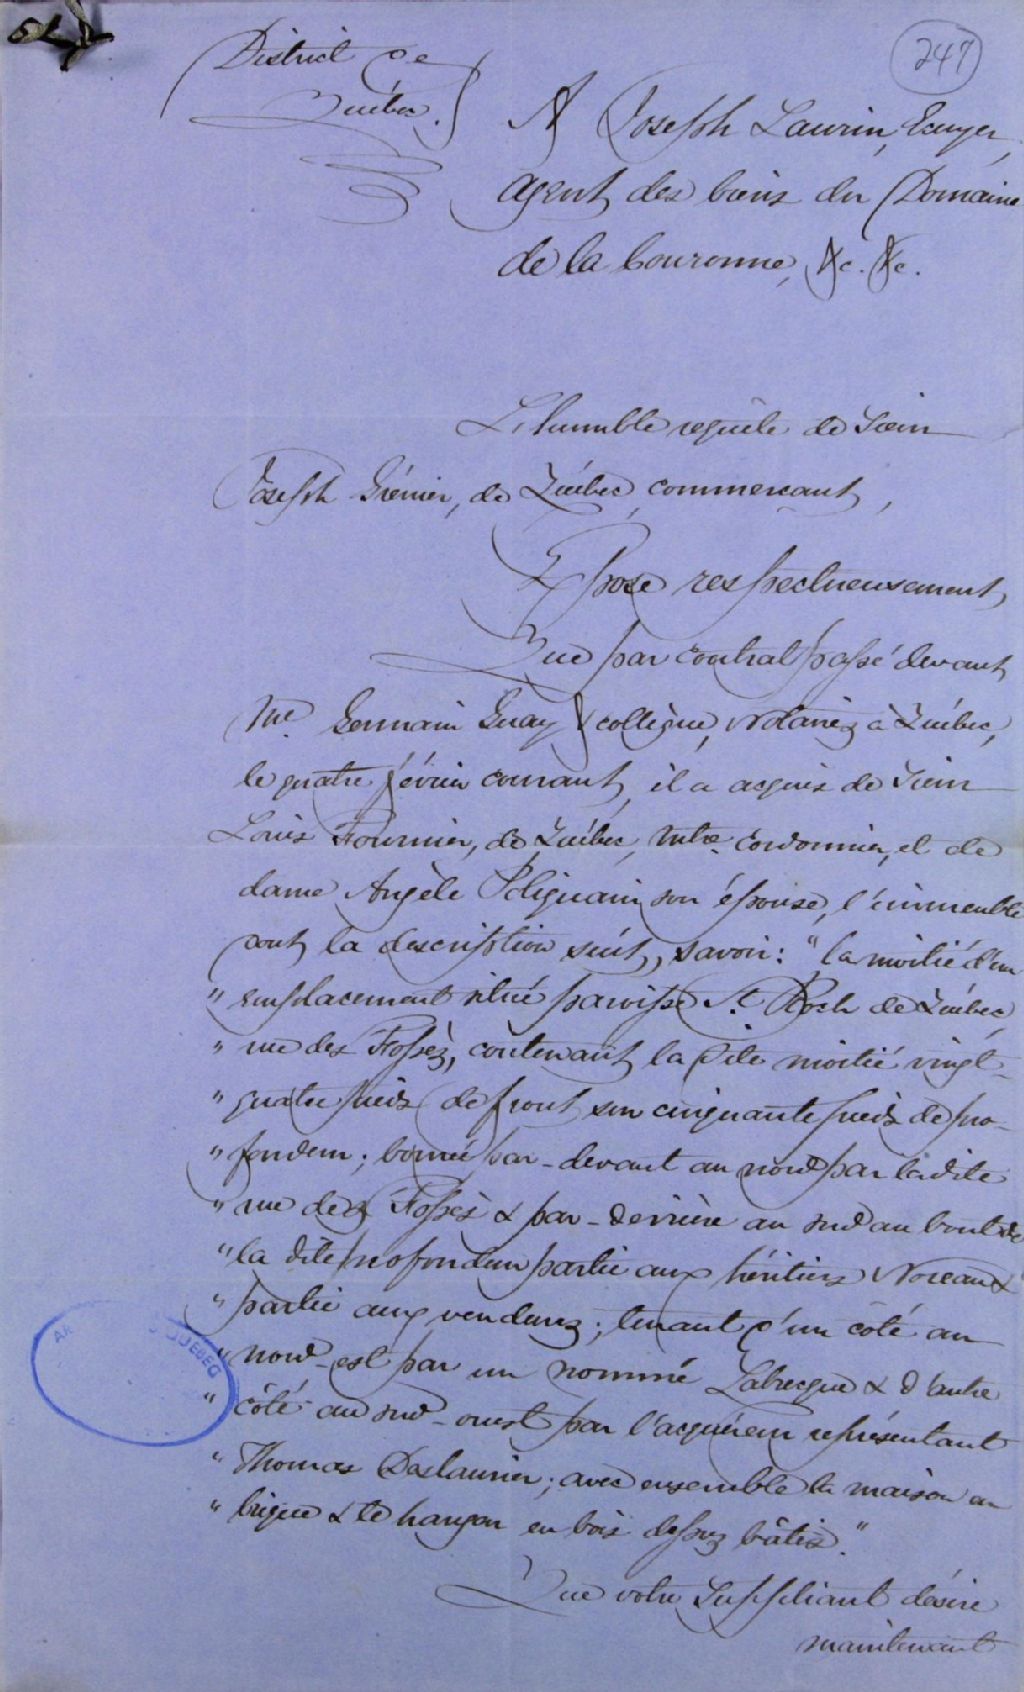 247
District de
Québec.
A Joseph Laurin, Ecuyer,
agent des biens du Domaine
de la Couronne, &c. &c.
L'humble requête de Sieur
Joseph Grénier, de Québec, commercant,
Expose respectueusement,
Que par contrat passé devant
Me. Germain Guay & collègue, Notaires à Québec,
le quatre février courant, il a acquis de Sieur
Louis Fournier, de Québec, mtre. cordonnier, et de
dame Angèle Poliquain son épouse, l'immeuble
dont la description suit, savoir: "la moitié d'un
" emplacement situé paroisse St. Roch de Québec,
" rue des Fossés, contenant la dite moitié vingt-
" quatre pieds de front sur cinquante pieds de pro-
" fondeur; bornée par-devant au nord par la dite
" rue des Fossés & par-derrière au sud au bout de
" la dite profondeur partie aux héritiers Noreau &
" partie aux vendeurs; tenant d'un côté au
" nord-est par un nommé Labrecque & d'autre
" côté au sud-ouest par l'acquéreur représentant
" Thomas Deslaurier; avec ensemble la maison en
" brique & le hangar en bois dessus bâtis."
Que votre Suppliant désire
maintenant
AR QUEBEC